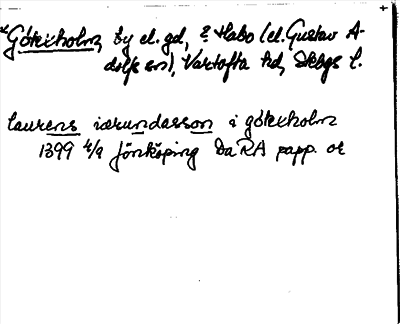 *Götekholm, by el. gd, ? Habo (el. Gustav A-
dolfs sn), Vartofta hd, Skbgs l.
laurens iærundasson i götekholm
1399 4/9 Jönköping DaRA papp. or